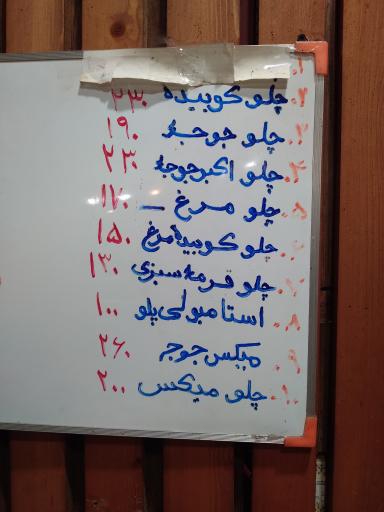 ۱.
۲. چلو کوبیده ۲۳۰
۳. چلو جوجه ۱۹۰
۴. چلو اکبر جوجه ۲۳۰
۵. چلو مرغ ـ ۱۷۰
۶. چلو کوبیده مرغ ۱۵۰
۷. چلو قرمه سبزی ۱۳۰
۸. استامبولی پلو ۱۰۰
۹. میکس جوجه ۲۶۰
۱۰. چلو میکس ۲۰۰